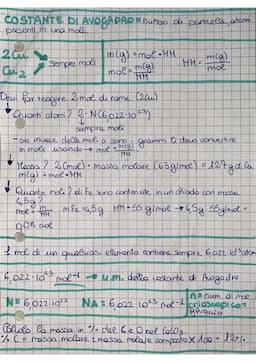 COSTANTE DI AVOGADRO = numero di particelle, atomi
presenti in una mole.
2Cu
Cu2
sempre moli
m(g) = mol • MM
mol = m(g)/MM
MM = m(g)/mol
Devi far reagire 2 mol di rame (2Cu)
Quanti atomi? 2 · N(6,022·10²³)
sempre moli
se invece delle moli a sono grammi li devo convertire
in moli usando → mol = m(g)/MM
Massa? 2(mol) • massa molare (63g/mol) = 127g di Cu
m(g) = mol • MM
Quante moli? di Fe sono contenute in un chiodo con massa
4,5g?
mol = m/MM mFe = 4,5g MM = 55 g/mol → 4,5g : 55g/mol =
0,08 mol
1 mol di un qualsiasi elemento contiene sempre 6,022·10²³ atomi
6,022·10²³ mol⁻¹ → u.m. della costante di Avogadro
N = 6,022·10²³ NA = 6,022·10²³ mol⁻¹
n = num. di mol
Calcola la massa in % del C e O nel CO2
% C = massa molare : massa molare composto × 100 = 12